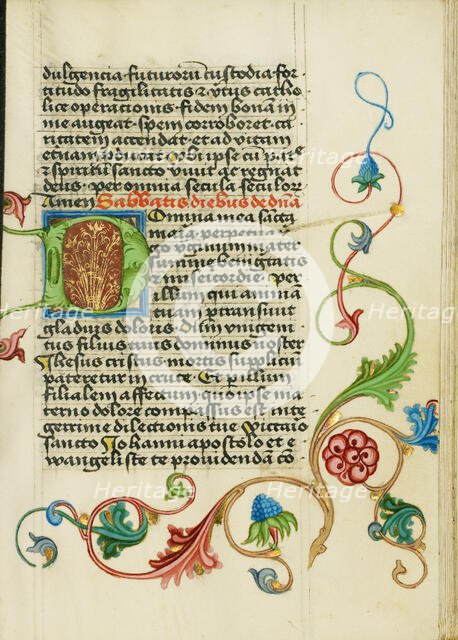 dulgencia· futurorū custodia for
titudo fragilitatis ⁊ v̄tus catho
lice operationis· fidem bonā in
me augeat· spem corroboret· ca
ritatem accendat et ad vitam
ipse cū p̄re
⁊ spiritu sancto viuit ⁊ regnat
deus· per omnia secula seculorꝫ
Amen Sabbatis diebus de dn̄a
Domina mea sancta
maria perpetua
benignitatis
per
illum qui animā
tuam pertransiuit
gladius doloris· dum vnigeni
tus filius tuus dominus noster
Ihesus cristus mortis supplicium
pateretur in cruce· Et per illum
filialem affectum quo ipse ma
terno dolore compassus est inte
gerrime dilectionis tue vicario
sancto Iohanni apostolo et e
wangeliste te prouidendam cō
Heritage